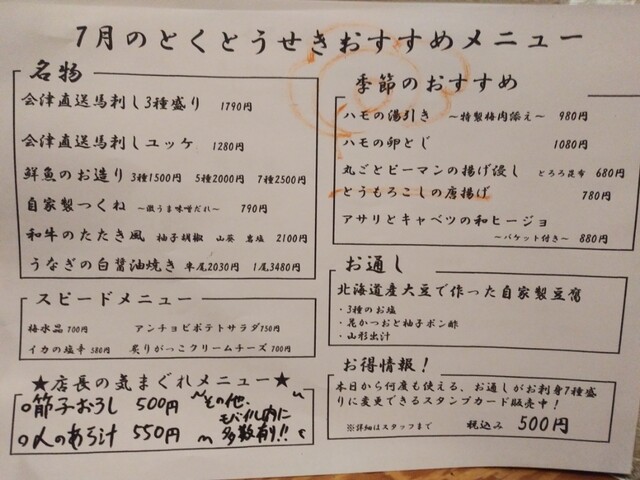 7月のとくとうせきおすすめメニュー
名物
会津直送馬刺し3種盛り 1790円
会津直送馬刺しユッケ 1280円
鮮魚のお造り 3種1500円 5種2000円 7種2500円
自家製つくね ～激うま味噌だれ～ 790円
和牛のたたき風 柚子胡椒 山葵 岩塩 2100円
うなぎの白醤油焼き 半尾2030円 1尾3480円
スピードメニュー
梅水晶 700円 アンチョビポテトサラダ750円
イカの塩辛 580円 炙りがっこクリームチーズ 700円
★店長の気まぐれメニュー★
○節子おろし 500円
○人のあら汁 550円
～その他、
モバイル内に
多数有り!!～
季節のおすすめ
ハモの湯引き ～特製梅肉添え～ 980円
ハモの卵とじ 1080円
丸ごとピーマンの揚げ浸し とろろ昆布 680円
とうもろこしの唐揚げ 780円
アサリとキャベツの和ヒージョ
～バケット付き～ 880円
お通し
北海道産大豆で作った自家製豆腐
・3種のお塩
・花かつおと柚子ポン酢
・山形出汁
お得情報！
本日から何度も使える、お通しがお刺身7種盛
りに変更できるスタンプカード販売中！
※詳細はスタッフまで 税込み 500円